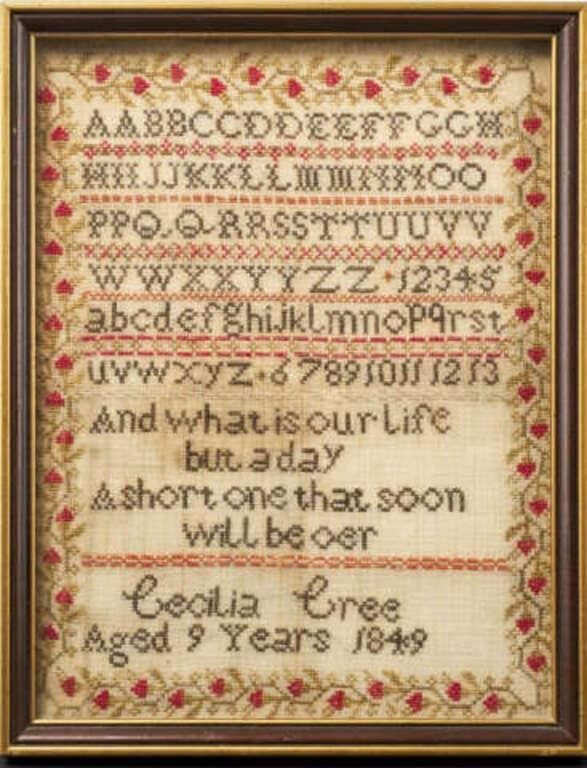 AABBCCDDEEFFGGH
HIIJJKKLLMMNNOO
PPQ.Q.RRSSTTUUVV
WWXXYYZZ·12345
abcdefghijklmnopqrst
uvwxyz·678910111213
And what is our life
but a day
A short one that soon
will be oer
Cecilia Cree
Aged 9 Years 1849